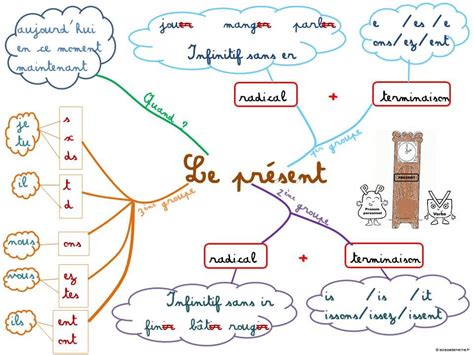 aujourd'hui
en ce moment
maintenant
Quand ?
jouer manger parler
Infinitif sans er
e /es /e
ons/ez/ent
radical + terminaison
1er groupe
Le présent
PRESENT
Pronom
personnel
Verbe
3ème groupe
je
tu
s
x
ds
il
t
d
nous
ons
vous
ez
tes
ils
ent
ont
2ème groupe
radical + terminaison
Infinitif sans ir
finir bâtir rougir
is /is /it
issons/issez/issent